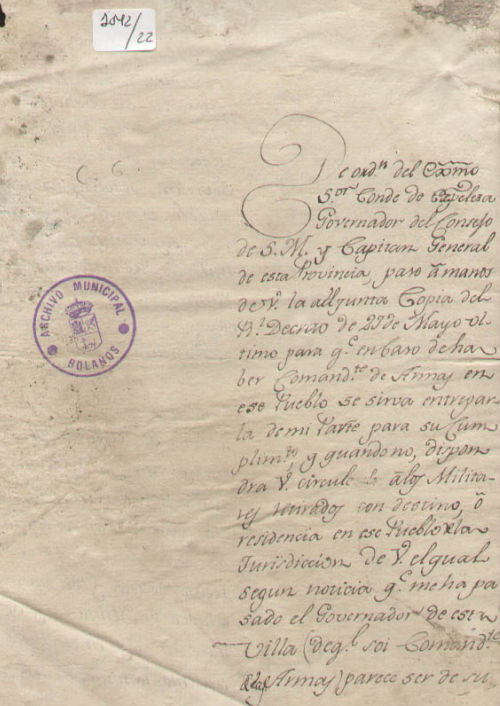 2042/22
C. 6
De ordn del Exmo
S.or Conde de
Governador del Consejo
de S. M. y Capitan General
de esta Provincia paso â manos
de V. la adjunta Copia del
Rl. Decreto de 27 de Mayo ul-
timo para q.e en caso de ha-
ber Comand.te de Armas en
ese Pueblo se sirva entregar-
la de mi Parte para su Cum-
plim.to, y quando no, dispon-
dra V. circule â los Milita-
res retirados con destino, ô
residencia en ese Pueblo
Jurisdiccion de V. el qual
segun noticia q.e me ha pa-
sado el Governador de esta
Villa (de q.e soi Comand.te
de Armas) parece ser de su
ARCHIVO MUNICIPAL
BOLAÑOS